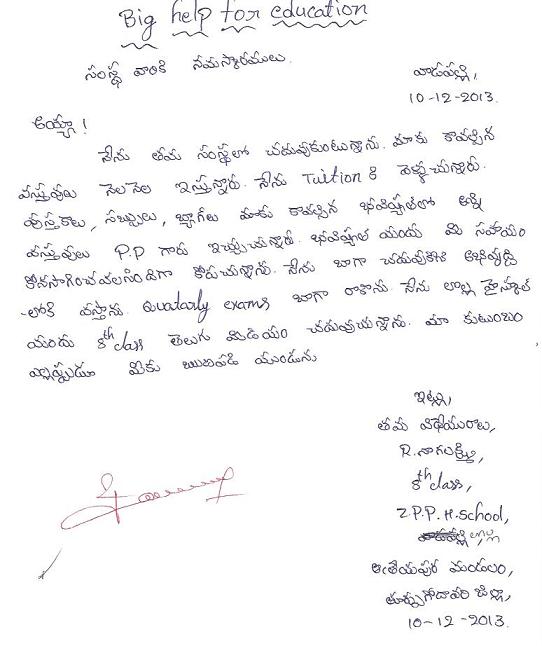 Big help for education
సంస్థ వారికి నమస్కారములు.
వాడపల్లి,
10-12-2013.
అయ్యా!
నేను తమ సంస్థలో చదువుకుంటున్నాను. మాకు కావల్సిన
వస్తువులు నెలనెల ఇస్తున్నారు. నేను Tuition కి వెళ్ళుచున్నారు.
పుస్తకాలు, సబ్బులు, బ్యాగ్‌లు మాకు కావల్సిన భవిష్యత్‌లో అన్ని
వస్తువులు P.P గారు ఇచ్చుచున్నారు. భవిష్యత్ యందు మీ సహాయం
కొనసాగించవలసిందిగా కోరుచున్నాను. నేను బాగా చదువుకుని అభివృద్ధి
-లోకి వస్తాను. Quatarly exams బాగా రాశాను. నేను లొల్ల హైస్కూల్
యందు 8th class తెలుగు మీడియం చదువుచున్నాను. మా కుటుంబం
ఎల్లప్పుడూ మీకు ఋణపడి యుండును
ఇట్లు,
తమ విధేయురాలు,
R. నాగలక్ష్మి,
8th class,
Z.P.P.H.School,
లొల్ల
ఆత్రేయపుర మండలం,
తూర్పుగోదావరి జిల్లా,
10-12-2013.